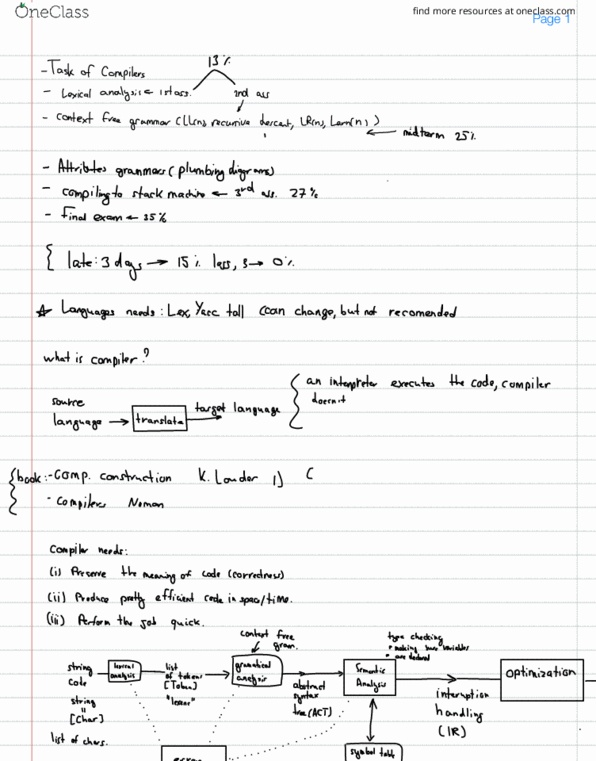 OneClass
find more resources at oneclass.com
Page 1
13 %
-Task of Compilers
- Lexical analysis ← 1st ass. 2nd ass
- context free grammar (LL(n), recursive descent, LR(n), Lalr(n))
← midterm 25%
- Attributes grammars (plumbing digrams)
- compiling to stack machine ← 3rd ass. 27%
- final exam ← 35%
{ late: 3 days → 15% less, 3 → 0%
Languages needs: Lex, Yacc tall (can change, but not recomended
what is compiler?
source language → translate → target language
{ an interpreter executes the code, compiler
doesn't
{book:-Comp. construction K. Louden 1) C
- Compilers
Compiler needs:
(i) Preserve the meaning of code (correctness)
(ii) Produce pretty efficient code in space/time.
(iii) Perform the job quick.
context free gram.
type checking
• making sure variables
• are declared
string code
lexical analysis
list of tokens
[Token]
"lexer"
gramatical analysis
abstract syntax tree (ACT)
Semantic Analysis
interuption handling (IR)
optimization
string
=
[Char]
list of chars.
error
symbol table